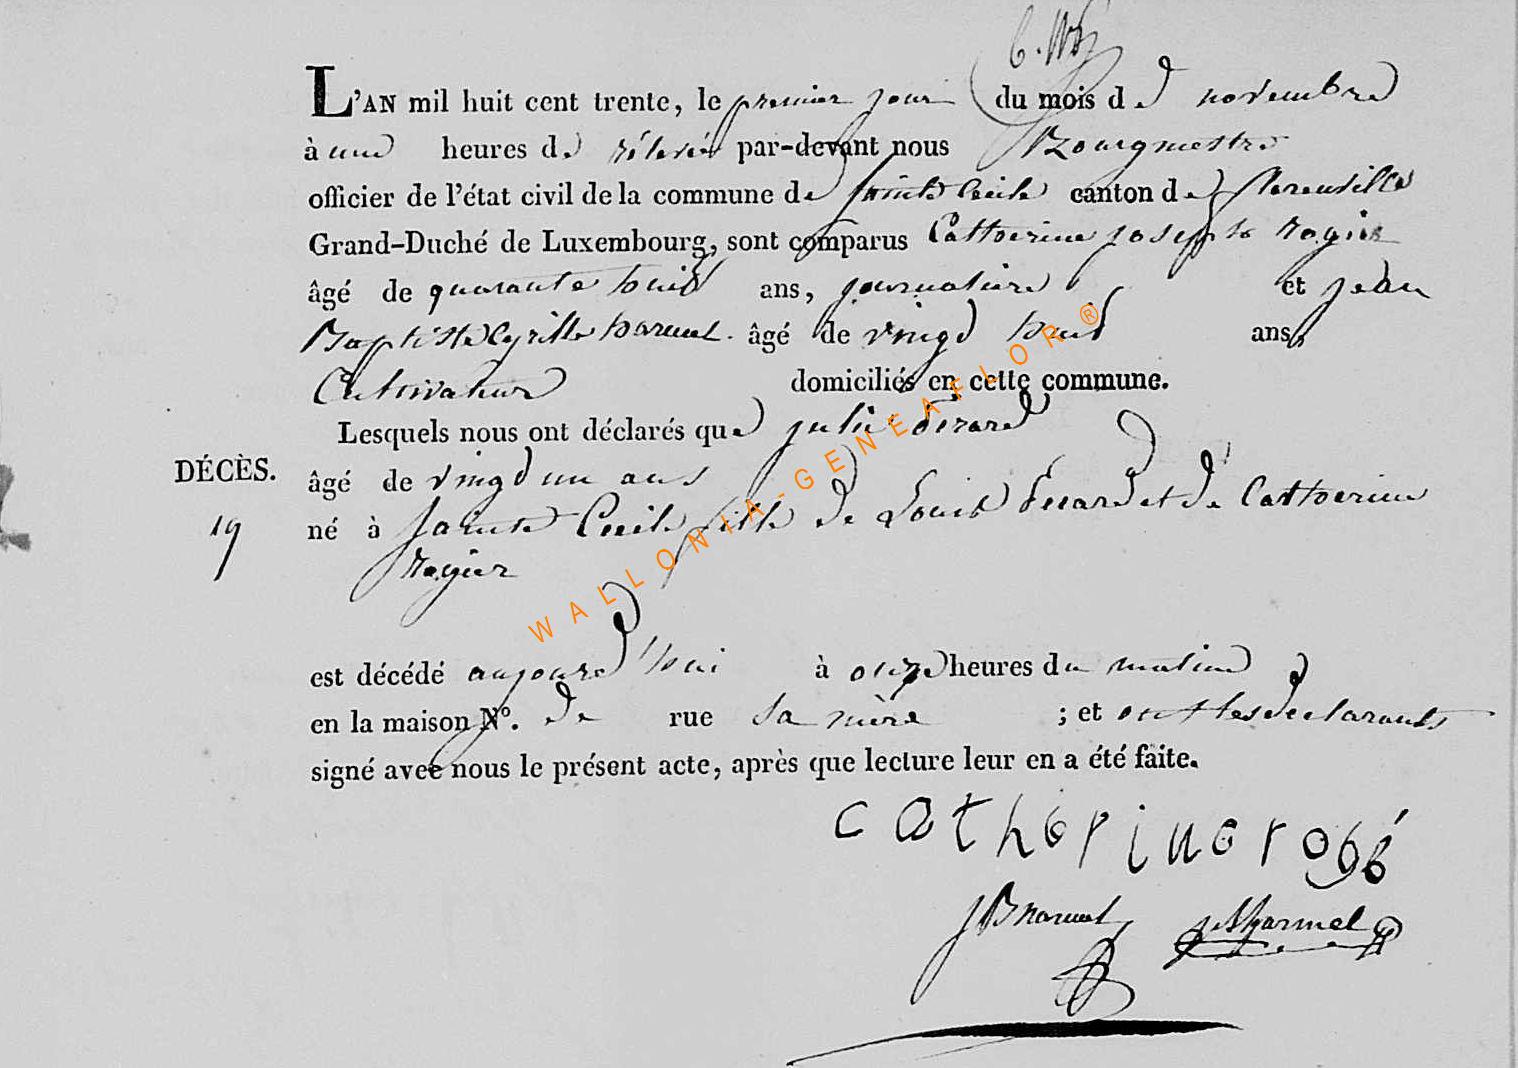 L'AN mil huit cent trente, le premier jour du mois de novembre
à une heures de rélevée par-devant nous Bourgmestre
officier de l'état civil de la commune de Sainte Cecile canton de florenville
Grand-Duché de Luxembourg, sont comparus Catherine josephe rogier
âgé de quarante huit ans, journaliere et jean
Baptiste Cyrille harmel. âgé de vingt huit ans,
Cultivateur domiciliés en cette commune.
Lesquels nous ont déclarés que julie Evrard
DÉCÈS. âgé de vingt un ans
19 né à Sainte Cecile fille de Louis Evrard et de Catherine
rogier
est décédé aujourd'hui à onze heures du matin
en la maison Nº. de rue sa mère ; et ont les declarants
signé avec nous le présent acte, après que lecture leur en a été faite.
catherine rogé
JB harmel harmel
WALLONIA-GENEAFLOR®